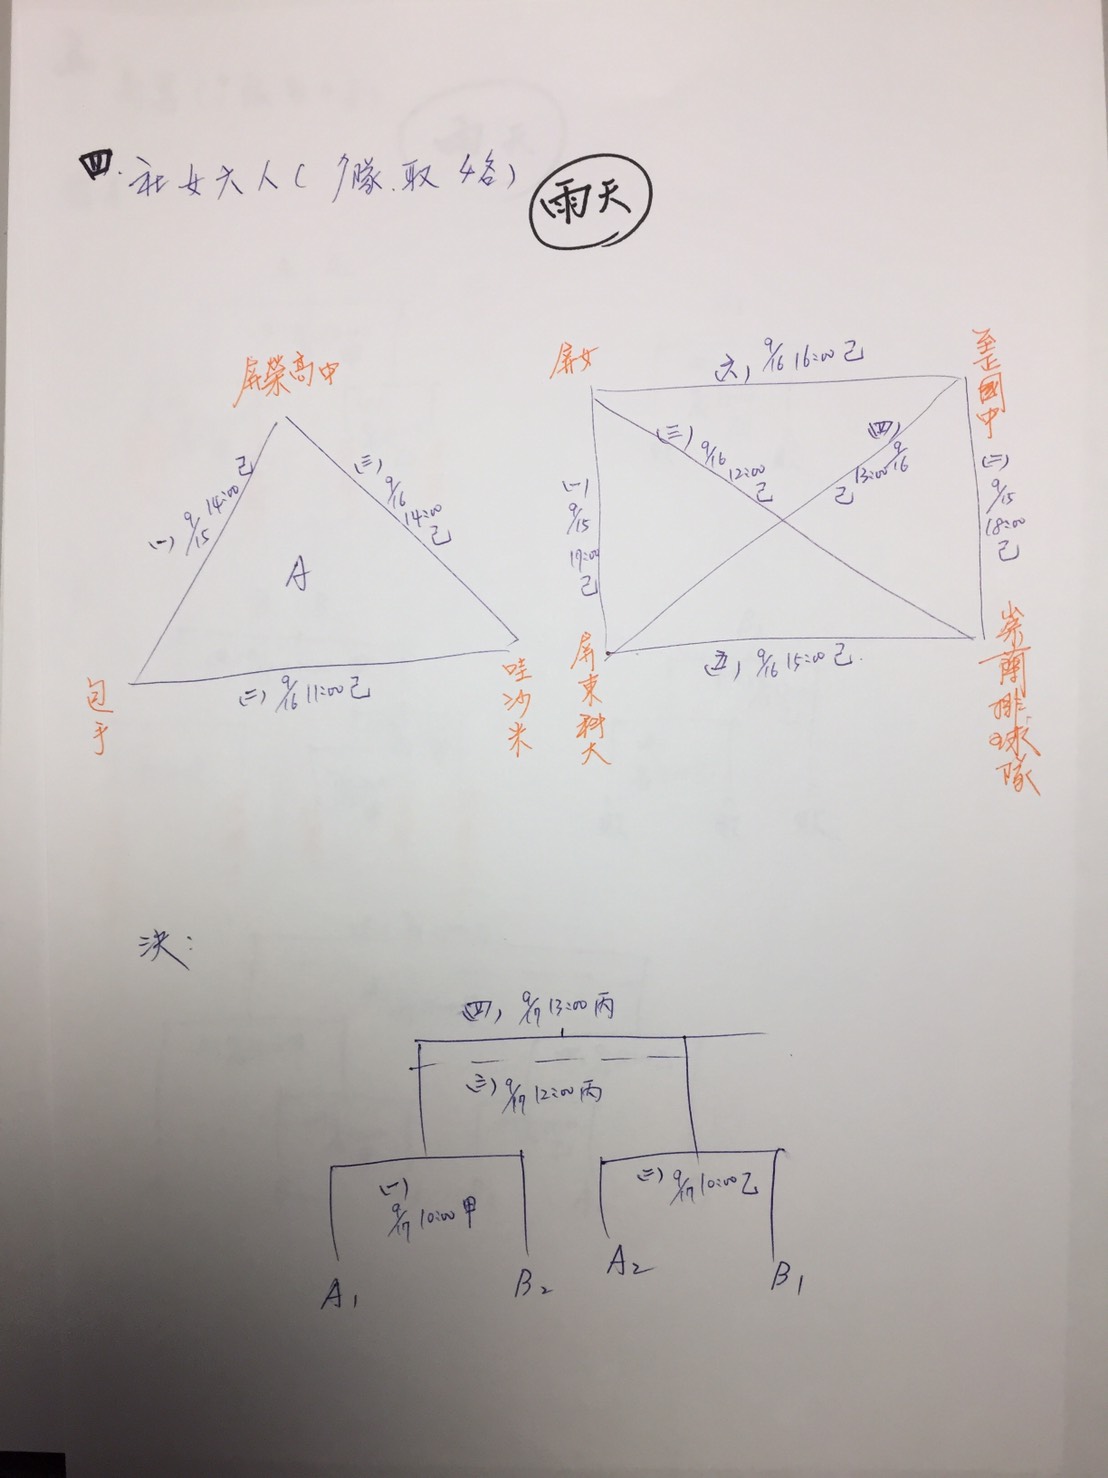 四.社女六人(7隊.取4名)
雨天
屏榮高中
(一) 9/15 14:00 己
(三) 9/16 14:00 己
A
(二) 9/16 11:00 己
包子
哇沙米
屏女
(六) 9/16 16:00 己
至正國中
(三) 9/16 12:00 己
(四) 9/16 13:00 己
(一) 9/15 17:00 己
(二) 9/15 18:00 己
(五) 9/16 15:00 己
屏東科大
崇蘭排球隊
決:
(四) 9/17 13:00 丙
(三) 9/17 12:00 丙
(一) 9/17 10:00 甲
(二) 9/17 10:00 己
A1 B2 A2 B1